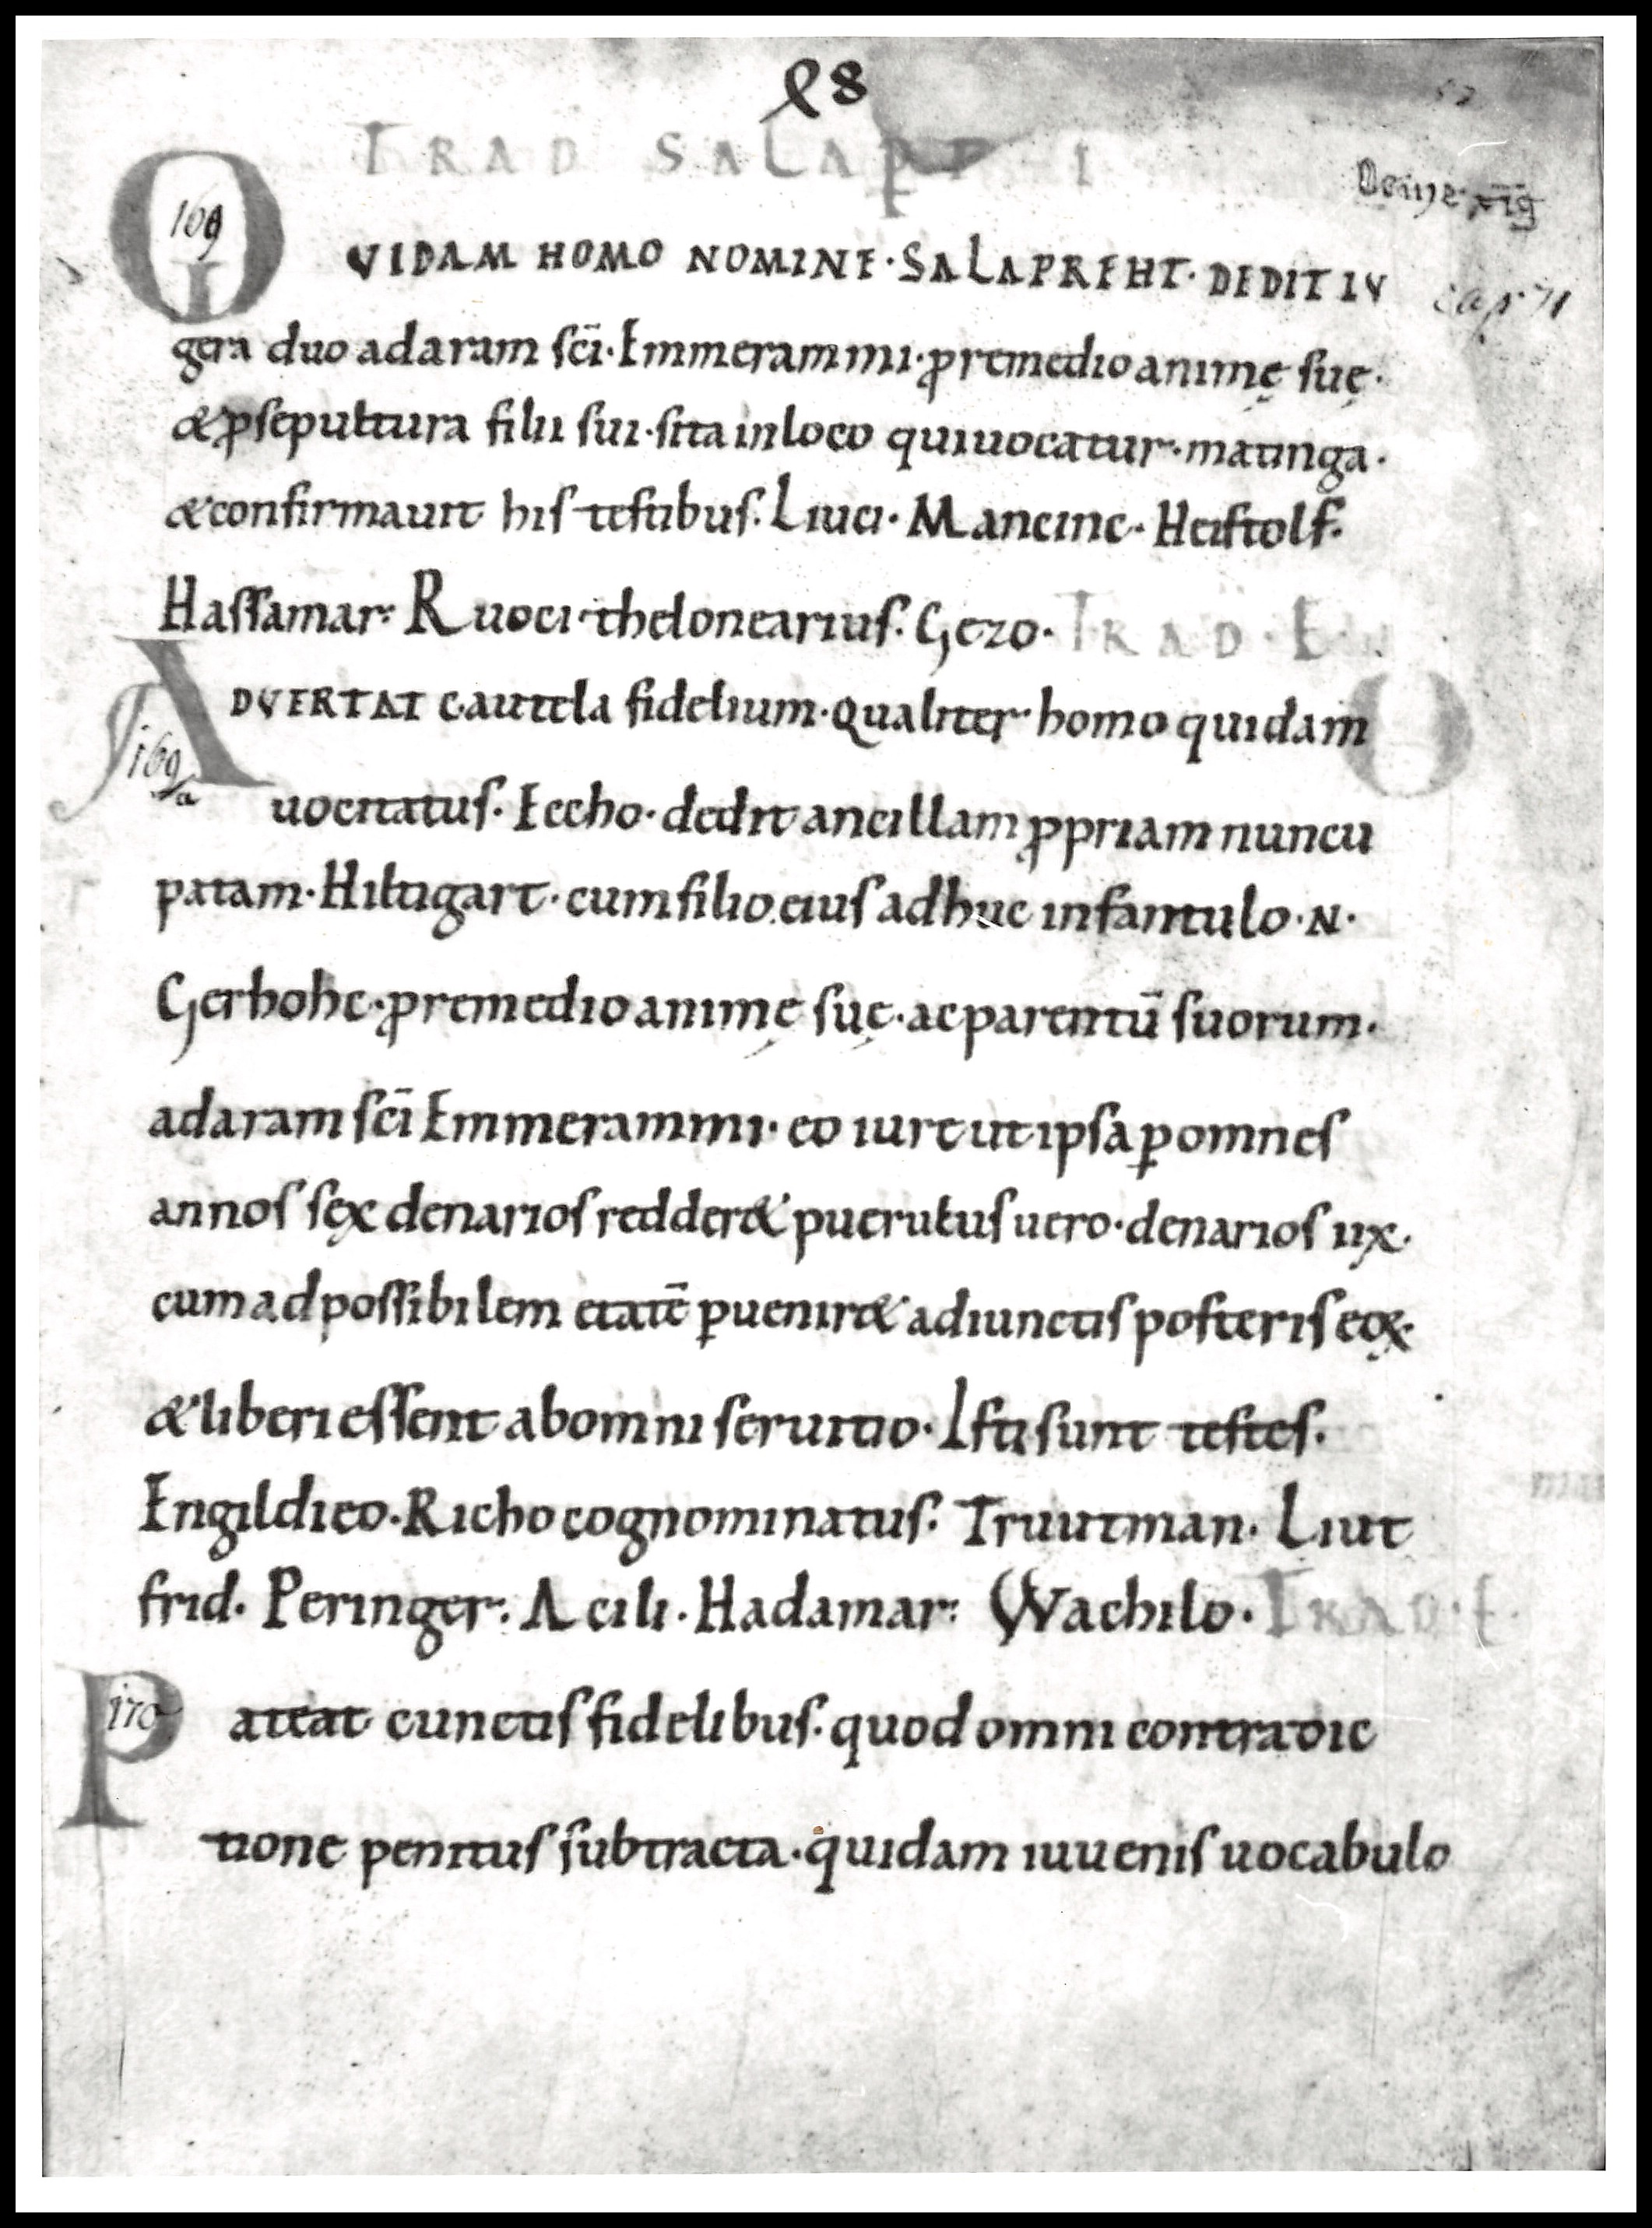 l8
TRAD SALAPR I
169
QVIDAM HOMO NOMINE·SALAPREHT·DEDIT IV
cap 71
gera duo ad aram sc̄i·Emmerammi·ꝓ remedio animę suę·
& ꝓ sepultura filii sui·sita in loco qui uocatur·matinga·
& confirmauit his testibus. Liuci· Mancinc· Heistolf.
Hassamar· Ruoci·thelonearius. Gezo· TRAD·E
ADVERTAT cautela fidelium·qualiter·homo quidam
169/a
uocitatus. Iccho·dedit ancillam ꝓpriam nuncu
patam·Hiltigart·cum filio eius adhuc infantulo·N·
Gerhohc·ꝓ remedio animę suę·ac parentū suorum·
ad aram sc̄i Emmerammi·eo iure ut ipsa ꝑ omnes
annos sex denarios redder& puerulus uero·denarios iix·
cum ad possibilem etatē ꝑuenir& adiunctis posteris eoꝝ·
& liberi essent ab omni seruitio· Isti sunt testes.
Engildico·Richo cognominatus· Truutman· Liut
frid· Peringer· Acili·Hadamar· Wachilo· TRAD·E·
170
Pateat cunctis fidelibus·quod omni contradic
tione penitus subtracta·quidam iuuenis uocabulo